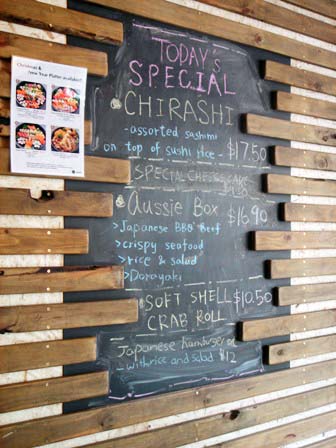 Christmas &
New Year Platter available!!
TODAY'S
SPECIAL
CHIRASHI
-assorted sashimi
on top of sushi rice - $17.50
SPECIAL
Aussie Box $16.90
>Japanese BBQ Beef
>crispy seafood
>rice & salad
>Dorayaki
SOFT SHELL $10.50
CRAB ROLL
Japanese Hamburger
-with rice and salad $12